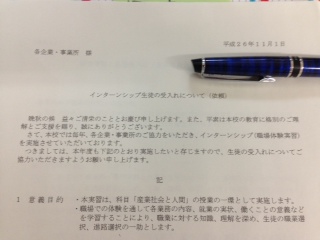 平成26年11月1日
各企業・事業所 様
インターンシップ生徒の受入れについて（依頼）
晩秋の候 益々ご清栄のこととお慶び申し上げます。また、平素は本校の教育に格別のご理
解とご支援を賜り、誠にありがとうございます。
さて、本校では毎年、各企業・事業所のご協力をいただき、インターンシップ（職場体験実習）
を実施させていただいております。
つきましては、本年度も下記のとおり実施したいと存じますので、生徒の受入れについてご
協力いただきますようお願い申し上げます。
記
1 意義目的 ・本実習は、科目「産業社会と人間」の授業の一環として実施します。
・職場での体験を通して各業務の内容、就業の実状、働くことの意義など
を学習することにより、職業に対する知識、理解を深め、生徒の職業選
択、進路選択の一助とします。